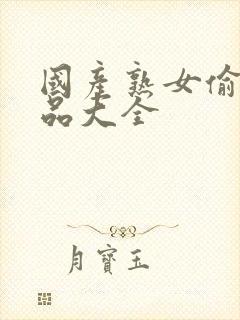 國產熟女偷
品大全
月寶玉